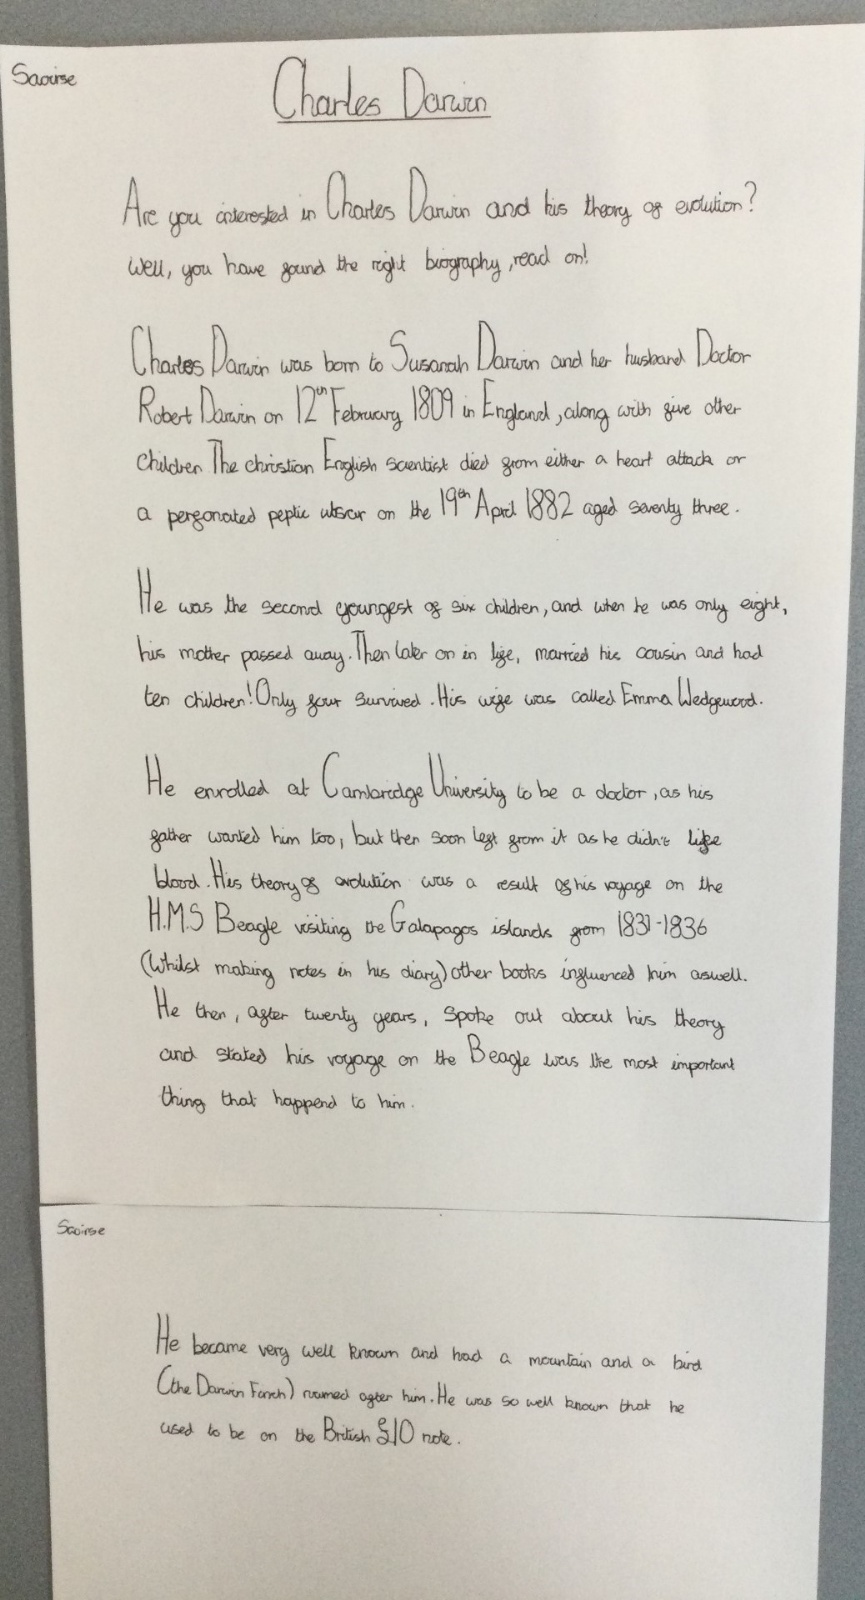 Saoirse
Charles Darwin
Are you interested in Charles Darwin and his theory of evolution?
Well, you have found the right biography, read on!
Charles Darwin was born to Susanah Darwin and her husband Doctor
Robert Darwin on 12th February 1809 in England, along with five other
children The christian English scientist died from either a heart attack or
a perforated peptic on the 19th April 1882 aged seventy three.
He was the second youngest of six children, and when he was only eight,
his mother passed away. Then later on in life, married his cousin and had
ten children! Only four survived. His wife was called Emma Wedgewood.
He enrolled at Cambridge University to be a doctor, as his
father wanted him too, but then soon left from it as he didn't like
blood. His theory of evolution was a result of his voyage on the
H.M.S Beagle visiting the Galapagos islands from 1831-1836
(Whilst making notes in his diary) other books influenced him aswell.
He then, after twenty years, spoke out about his theory
and stated his voyage on the Beagle was the most important
thing that happend to him.
Saoirse
He became very well known and had a mountain and a bird
(the Darwin Finch) named after him. He was so well known that he
used to be on the British £10 note.